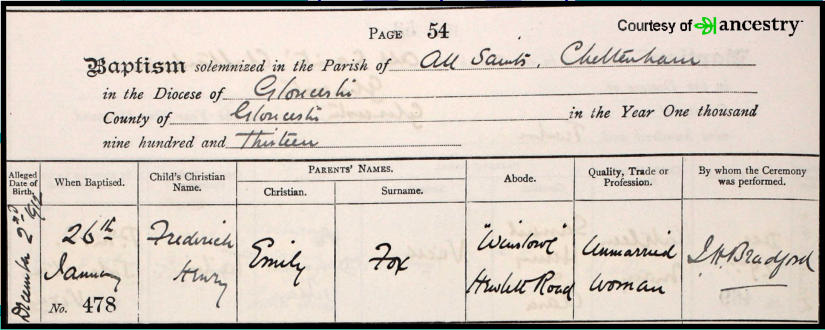 Courtesy of ancestry
PAGE 54
Baptism solemnized in the Parish of All Saints, Cheltenham
in the Diocese of Gloucester
County of Gloucester in the Year One thousand
nine hundred and Thirteen
Alleged Date of Birth.
When Baptised.
Child's Christian Name.
PARENTS' NAMES.
Christian.
Surname.
Abode.
Quality, Trade or Profession.
By whom the Ceremony was performed.
December 2nd 1912
26th
January
No. 478
Fredrick
Henry
Emily
Fox
"Winstowe"
Hewlett Road
Unmarried
Woman
J.H. Bradford